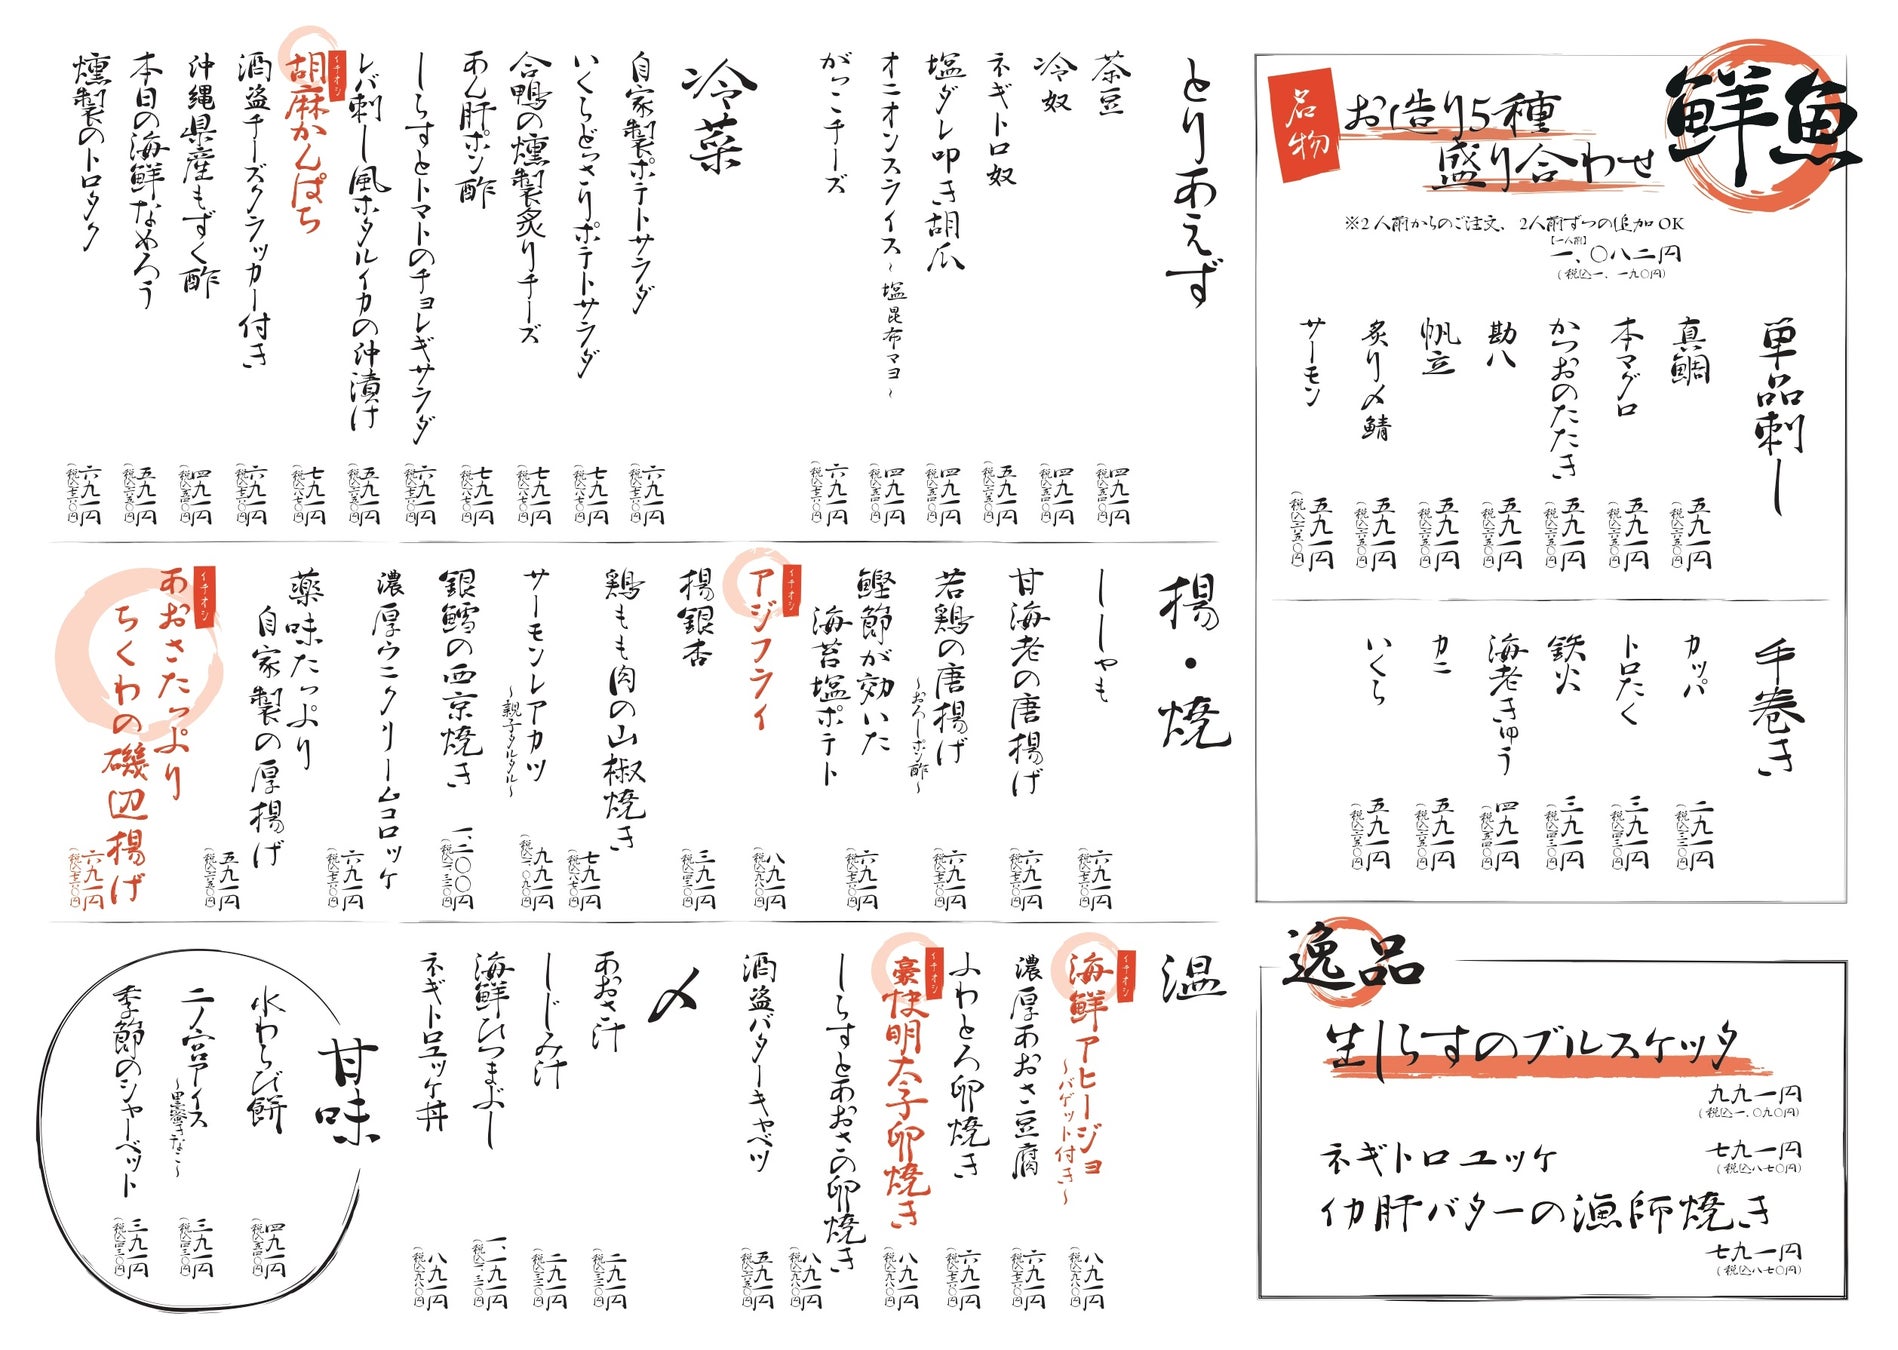 鮮魚
名物
お造り5種
盛り合わせ
※2人前からのご注文、2人前ずつの追加OK
【一人前】
一、〇八二円
(税込一、一九〇円)
単品刺し
真鯛 五九一円 (税込六五〇円)
本マグロ 五九一円 (税込六五〇円)
かつおのたたき 五九一円 (税込六五〇円)
勘八 五九一円 (税込六五〇円)
帆立 五九一円 (税込六五〇円)
炙り〆鯖 五九一円 (税込六五〇円)
サーモン 五九一円 (税込六五〇円)
手巻き
カッパ 二九一円 (税込三二〇円)
トロたく 三九一円 (税込四三〇円)
鉄火 三九一円 (税込四三〇円)
海老きゅう 四九一円 (税込五四〇円)
カニ 五九一円 (税込六五〇円)
いくら 五九一円 (税込六五〇円)
逸品
生しらすのブルスケッタ
九九一円
(税込一、〇九〇円)
ネギトロユッケ
七九一円
(税込八七〇円)
イカ肝バターの漁師焼き
七九一円
(税込八七〇円)
とりあえず
茶豆 四九一円 (税込五四〇円)
冷奴 四九一円 (税込五四〇円)
ネギトロ奴 五九一円 (税込六五〇円)
塩ダレ叩き胡瓜 四九一円 (税込五四〇円)
オニオンスライス~塩昆布マヨ~ 四九一円 (税込五四〇円)
がっこチーズ 六九一円 (税込七六〇円)
冷菜
自家製ポテトサラダ 六九一円 (税込七六〇円)
いくらどっさりポテトサラダ 七九一円 (税込八七〇円)
合鴨の燻製炙りチーズ 七九一円 (税込八七〇円)
あん肝ポン酢 七九一円 (税込八七〇円)
しらすとトマトのチョレギサラダ 六九一円 (税込七六〇円)
レバ刺し風ホタルイカの沖漬け 五九一円 (税込六五〇円)
イチオシ
胡麻かんぱち 七九一円 (税込八七〇円)
酒盗チーズクラッカー付き 六九一円 (税込七六〇円)
沖縄県産もずく酢 四九一円 (税込五四〇円)
本日の海鮮なめろう 五九一円 (税込六五〇円)
燻製のトロタク 六九一円 (税込七六〇円)
揚・焼
ししゃも 六九一円 (税込七六〇円)
甘海老の唐揚げ 六九一円 (税込七六〇円)
若鶏の唐揚げ
~おろしポン酢~ 六九一円 (税込七六〇円)
鰹節が効いた
海苔塩ポテト 六九一円 (税込七六〇円)
イチオシ
アジフライ 八九一円 (税込九八〇円)
揚銀杏 三九一円 (税込四三〇円)
鶏もも肉の山椒焼き 七九一円 (税込八七〇円)
サーモンレアカツ
~親子タルタル~ 九九一円 (税込一、〇九〇円)
銀鱈の西京焼き 一、二〇〇円 (税込一、三二〇円)
濃厚ウニクリームコロッケ 六九一円 (税込七六〇円)
薬味たっぷり
自家製の厚揚げ 五九一円 (税込六五〇円)
イチオシ
あおさたっぷり
ちくわの磯辺揚げ 六九一円 (税込七六〇円)
温
イチオシ
海鮮アヒージョ
~バゲット付き~ 八九一円 (税込九八〇円)
濃厚あおさ豆腐 六九一円 (税込七六〇円)
ふわとろ卵焼き 六九一円 (税込七六〇円)
イチオシ
豪快明太子卵焼き 八九一円 (税込九八〇円)
しらすとあおさの卵焼き 八九一円 (税込九八〇円)
酒盗バターキャベツ 五九一円 (税込六五〇円)
〆
あおさ汁 二九一円 (税込三二〇円)
しじみ汁 二九一円 (税込三二〇円)
海鮮ひつまぶし 一、一九一円
ネギトロユッケ丼 八九一円 (税込九八〇円)
甘味
水わらび餅 四九一円 (税込五四〇円)
二ノ宮アイス
~黒蜜きなこ~ 三九一円 (税込四三〇円)
季節のシャーベット 三九一円 (税込四三〇円)